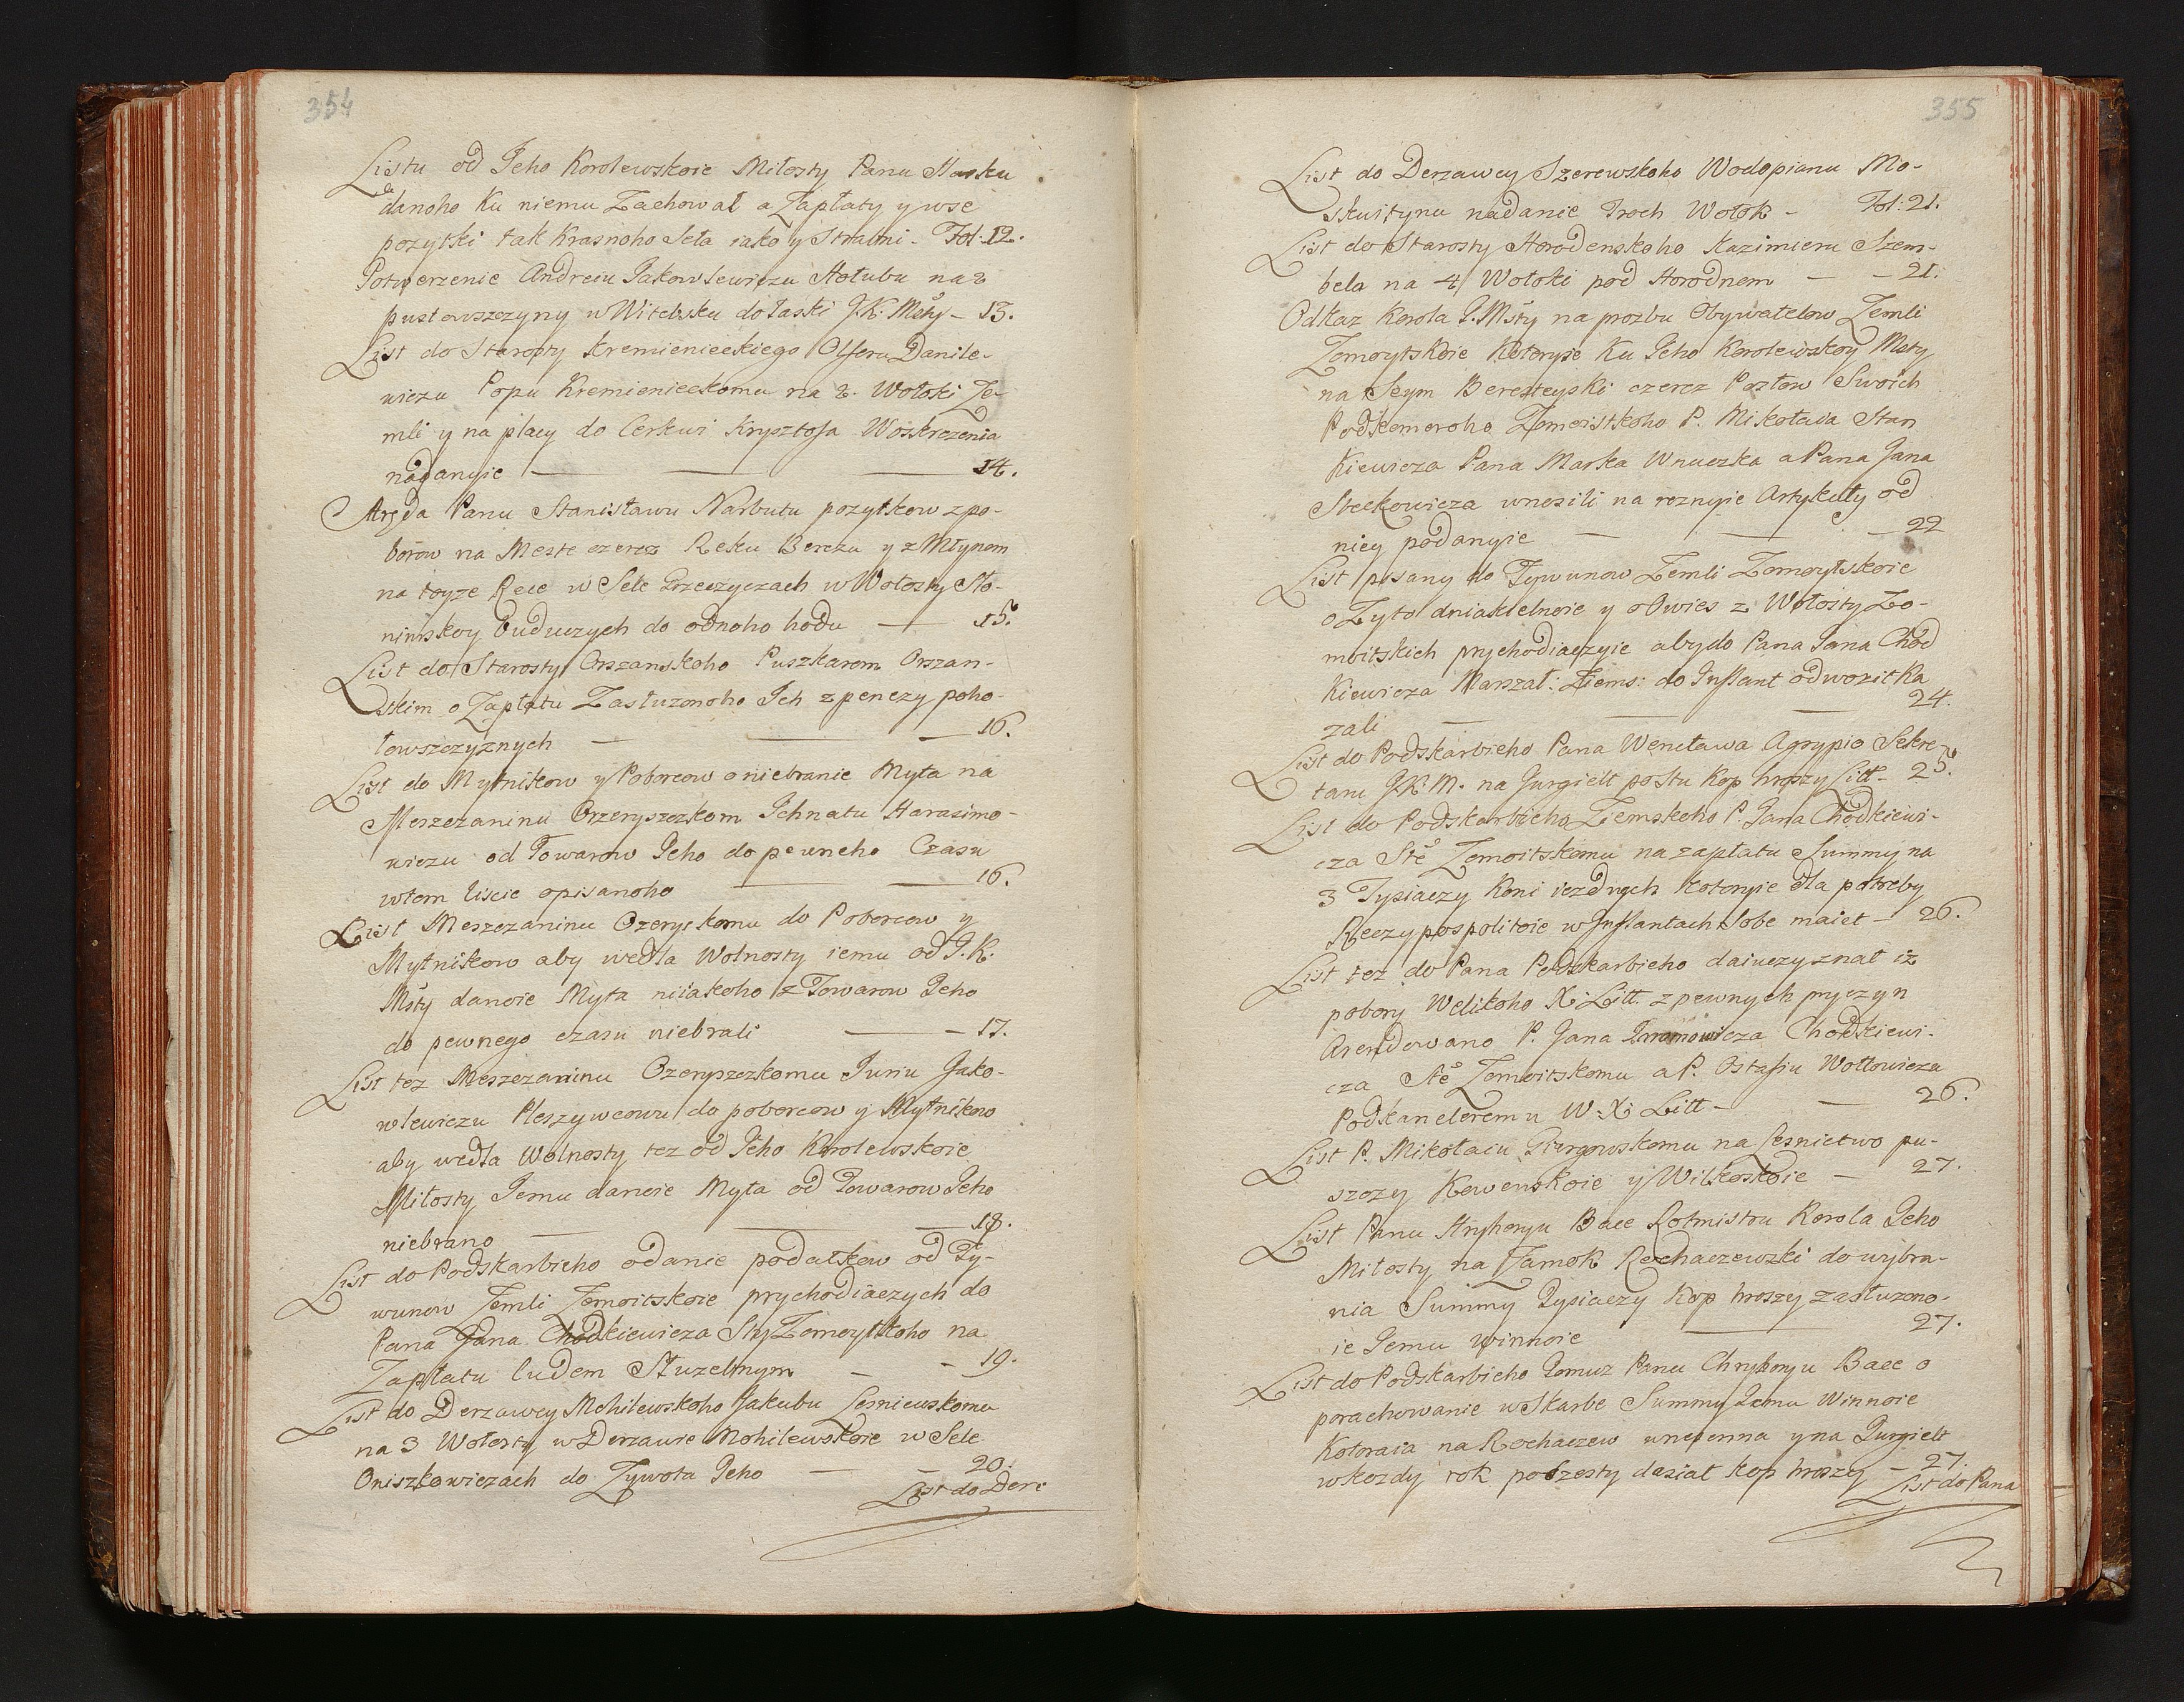 354
Listu od Jeho Korolewskoie Miłosty Panu Hasku
danoho Ku niemu Zachował a Zapłaty y wse
pozytki tak Krasnoho Seła iako y Strawni - Fol: 12.
Potwerzenie Andreiu Jakowlewiczu Hołubu na 2
pustowszczyny w Witebsku do łaski J.K. Msty - 13.
List do Starosty Kremienieckiego Olferu Danile-
wiczu Popu Kremienieckomu na 2. Wołoki Ze-
mli y na płacy do Cerkwi Krysztofa Woskrezenia
nadanyie — 14.
Aręda Panu Stanisławu Narbutu pozytkow z po-
borow na Meste czerez Reku Berezu y z Młynom
na toyze Rece w Sele Przeczyczach w Wołosty Sło-
nimskoy buduczych do odnoho hodu — 15.
List do Starosty Orszanskoho Puszkarom Orszan-
skim o Zapłatu Zasłuzonoho Ich z penezy poho-
łowszczyznych — 16.
List do Mytnikow y Poborcow o niebranie Myta na
Meszczaninu Ozeryszczkom Ihnatu Harasimo-
wiczu od Towarow Jeho do pewneho Czasu
w tom liscie opisanoho — 16.
List Meszczaninu Ozeryskomu do Poborcow y
Mytnikow aby wedła Wolnosty iemu od J.K.
Msty danoie Myta niiakoho z Towarow Jeho
do pewnego czasu niebrali — 17.
List tez Meszczaninu Ozeryszczkomu Juriu Jako-
wlewiczu Pleszywcowu do poborcow y Mytnikow
aby wedła Wolnosty tez od Jeho Korolewskoie
Miłosty Jemu danoie Myta od Towarow Jeho
niebrano — 18.
List do Podskarbieho odanie podatkow od Ty-
wunow Zemli Zomoitskoie prychodiaczych do
Pana Jana Chodkiewicza Sty Zomoytskoho na
Zapłatu ludem Słuzebnym — 19.
List do Derzawcy Mohilewskoho Jakubu Lemiewskomu
na 3 Wołosty w Derzawie Mohilewskoie w Sele
Oniszkowiczach do Zywota Jeho — 20.
List do Derz
355
List do Derzawcy Szerewskoho Wodopianu Mo-
skwitynu nadanie Troch Wołok - Fol: 21.
List do Starosty Horodenskoho Kazimieru Szem-
bela na 4 Wołoki pod Horodnem — - 21.
Odkaz Korola J. Msty na prozbu Obywatelow Zemli
Zomoytskoie Kotoryie Ku Jeho Korolewskoy Msty
na Seym Beresteyski czerez Posłow Swoich
Podkomoroho Zomoistkoho P. Mikołaia Stan
Kiewicza Pana Marka Wnuczka a Pana Jana
Steckowicza wnosili na roznyie Artykuły od
niey podanyie — 22
List pisany do Tywunow Zemli Zomoytskoie
o Zyto dniakielnoie y o Owies z Wołosty Zo-
moitskich prychodiaczyie aby do Pana Jana Chod
Kiewicza Marszał: Ziems: do Inflant odwozit Ka
zali — 24.
List do Podskarbieho Pana Wencława Agrypio Sekre-
taru J.K.M. na Jurgielt po Stu Kop hroszy Litt - 25.
List do Podskarbieho Ziemskoho P. Jana Chodkiewi-
cza Stě Zomoitskomu na zapłatu Summy na
3 Tysiaczy Koni iezdnych kotoryie dla potreby
Reczypospolitoie w Inflantach Sobe maiet - 26.
List tez do Pana Podskarbieho daiuczy znat iz
pobory Welikoho X. Litt. z pewnych pryczyn
Arendowano P. Jana Chodkiewi-
cza Stě Zomoitskomu a P. Ostafiu Wołłowicza
Podkancleremu W. X. Litt - — 26.
List P. Mikołaiu na Lesnictwo pu-
szczy Kowenskoie y Wilkoskoie — 27.
List Panu Hryhoryu Bace Rotmistru Korola Jeho
Miłosty na Zamok Rochaczewski do wybra-
nia Summy Tysiaczy Kop hroszy zasłuzono-
ie Jemu winnoie — 27.
List do Podskarbieho Tomuz Panu Chryhoryu Bace o
porachowanie w Skarbe Summy Jemu Winnoie
Kotoraia na Rochaczew wnesenna y na Jurgielt
w kozdy rok po szesty desiat kop hroszy - 27.
List do Pana